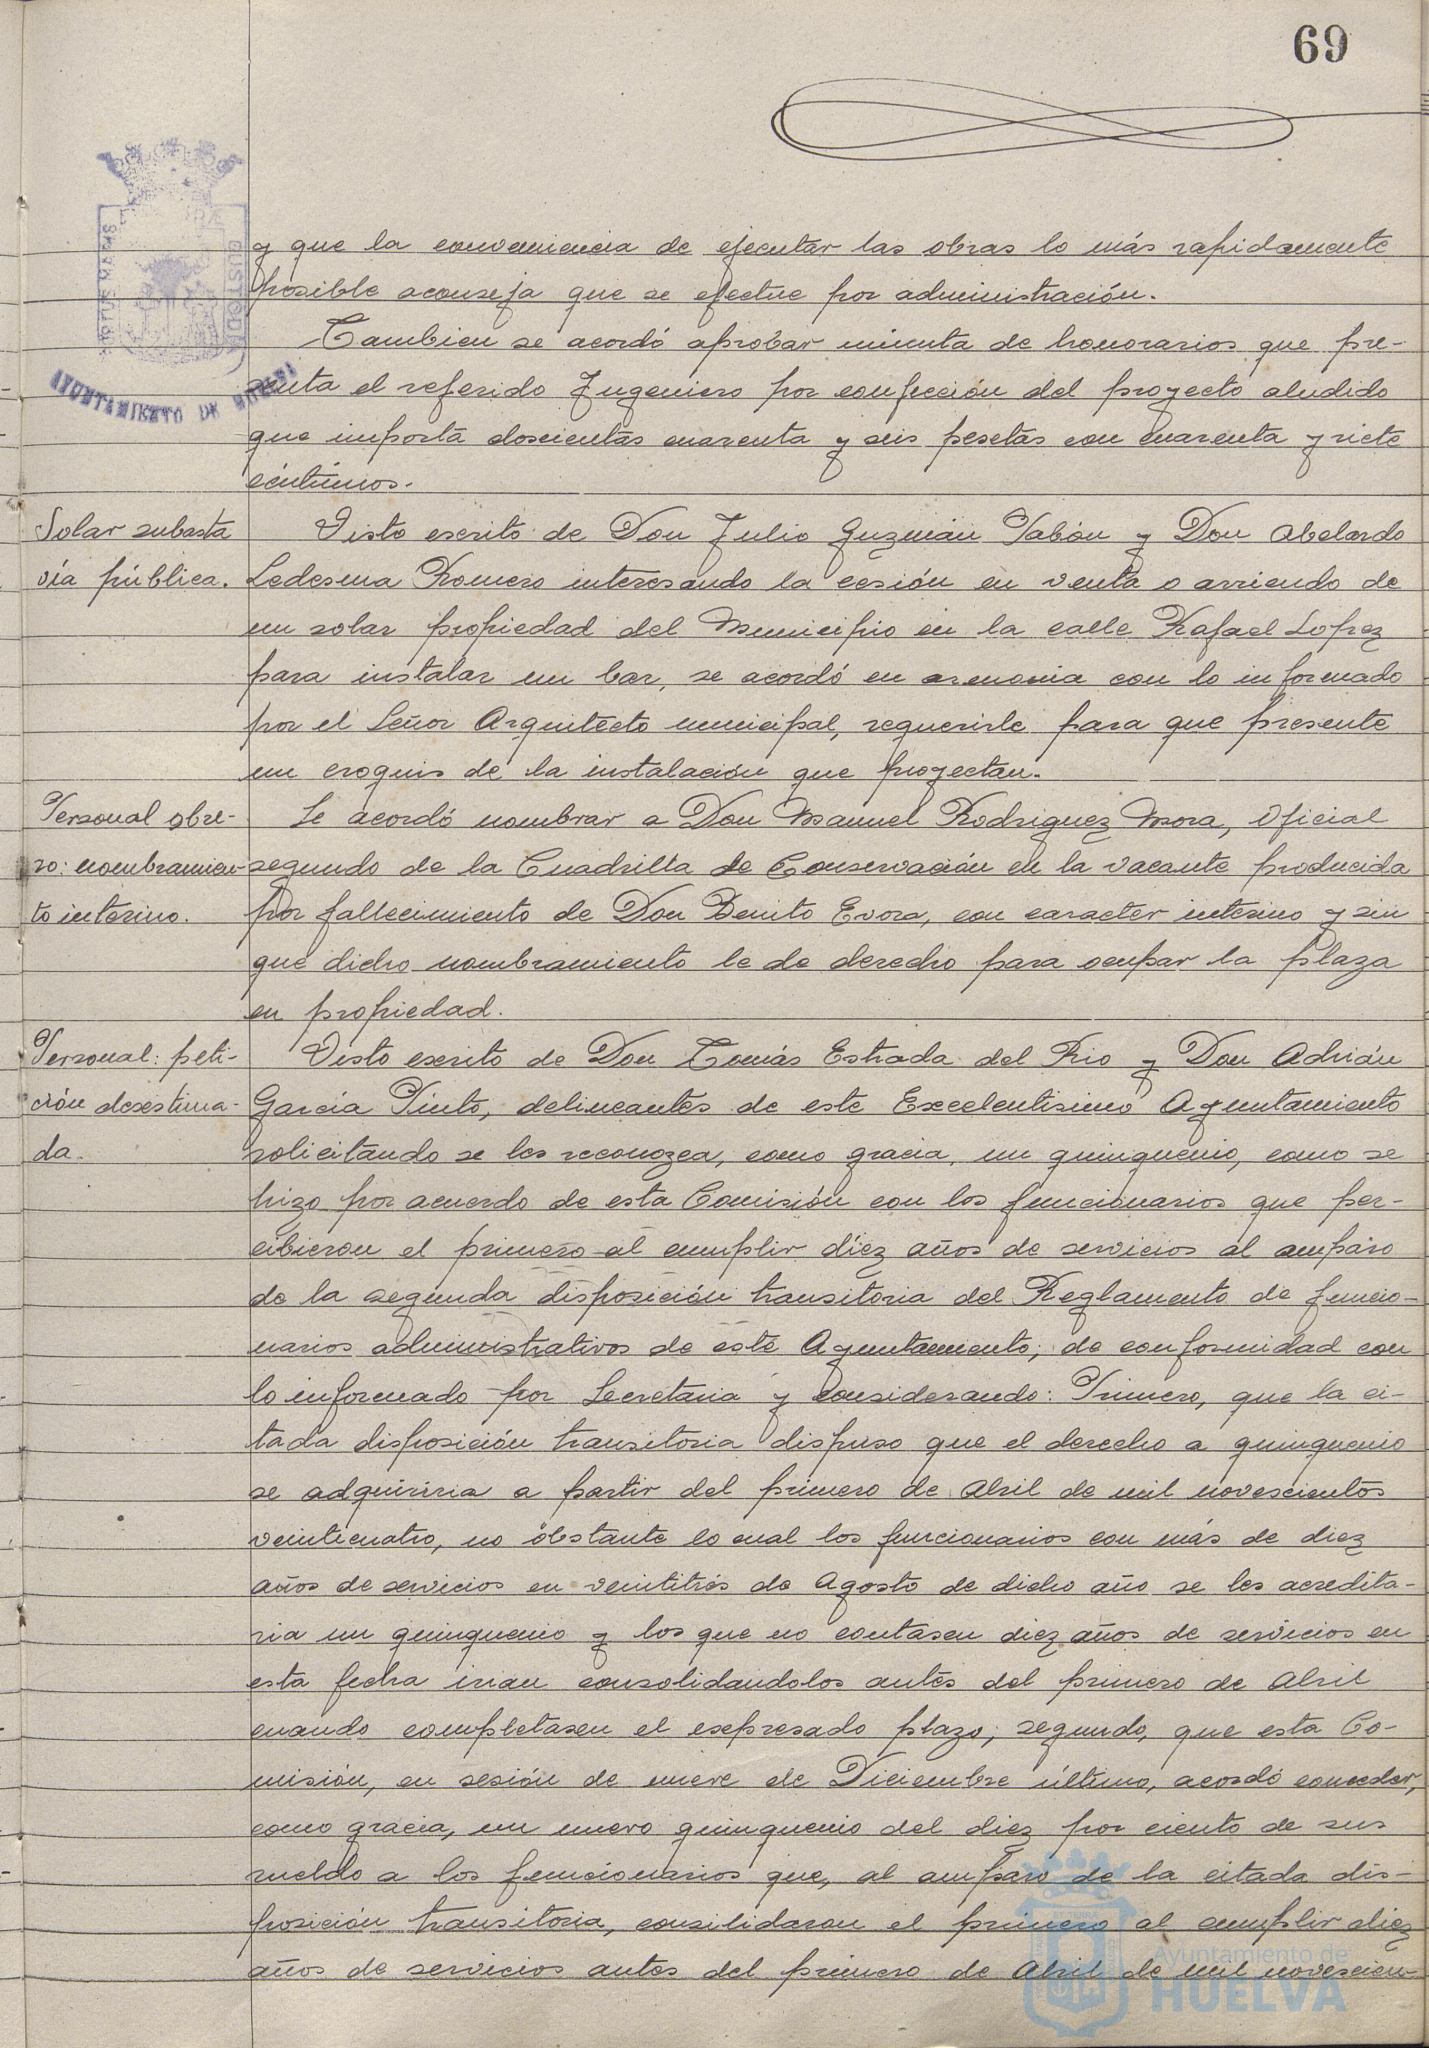 69
y que la conveniencia de ejecutar las obras lo más rapidamente
posible aconseja que se efectue por administración.
Tambien se acordó aprobar minuta de honorarios que pre-
senta el referido Ingeniero por confección del proyecto aludido
que importa doscientas cuarenta y seis pesetas con cuarenta y siete
céntimos.
Solar subasta
vía pública.
Visto escrito de Don Julio Guzmán Pabón y Don Abelardo
Ledesma Romero interesando la cesión en venta o arriendo de
un solar propiedad del Municipio en la calle Rafael Lopez
para instalar un bar, se acordó en armonia con lo informado
por el Señor Arquitecto municipal, requerirle para que presente
un croquis de la instalación que proyectan.
Personal obre-
ro: nombramien-
to interino.
Se acordó nombrar a Don Manuel Rodriguez Mora, Oficial
segundo de la Cuadrilla de Conservación en la vacante producida
por fallecimiento de Don Benito Evora, con caracter interino y sin
que dicho nombramiento le de derecho para ocupar la plaza
en propiedad.
Personal: peti-
ción desestima-
da.
Visto escrito de Don Tomás Estrada del Rio y Don Adrián
García Pinto, delineantes de este Excelentisimo Ayuntamiento
solicitando se les reconozca, como gracia, un quinquenio, como se
hizo por acuerdo de esta Comisión con los funcionarios que per-
cibieron el primero al cumplir diez años de servicios al amparo
de la segunda disposición transitoria del Reglamento de funcio-
narios administrativos de este Ayuntamiento; de conformidad con
lo informado por Secretaria y considerando: Primero, que la ci-
tada disposición transitoria dispuso que el derecho a quinquenio
se adquiriria a partir del primero de Abril de mil novescientos
veinticuatro, no obstante lo cual los funcionarios con más de diez
años de servicios en veintitrés de Agosto de dicho año se les acredita-
ria un quinquenio y los que no contasen diez años de servicios en
esta fecha irian consolidandolos antes del primero de Abril
cuando completasen el expresado plazo; segundo, que esta Co-
misión, en sesión de nueve de Diciembre último, acordó conceder,
como gracia, un nuevo quinquenio del diez por ciento de sus
sueldo a los funcionarios que, al amparo de la citada dis-
posición transitoria, consilidaron el primero al cumplir diez
años de servicios antes del primero de Abril de mil novescien-
AYUNTAMIENTO DE
Ayuntamiento de
HUELVA